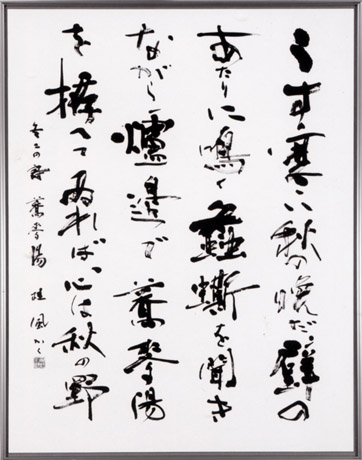 うす寒い秋の晩だ 壁の
あたりに鳴くを聞き
ながら爐邊で蕎麥湯
をへて居れば 心は秋の野
冬二の詩 蕎麥湯 風かく